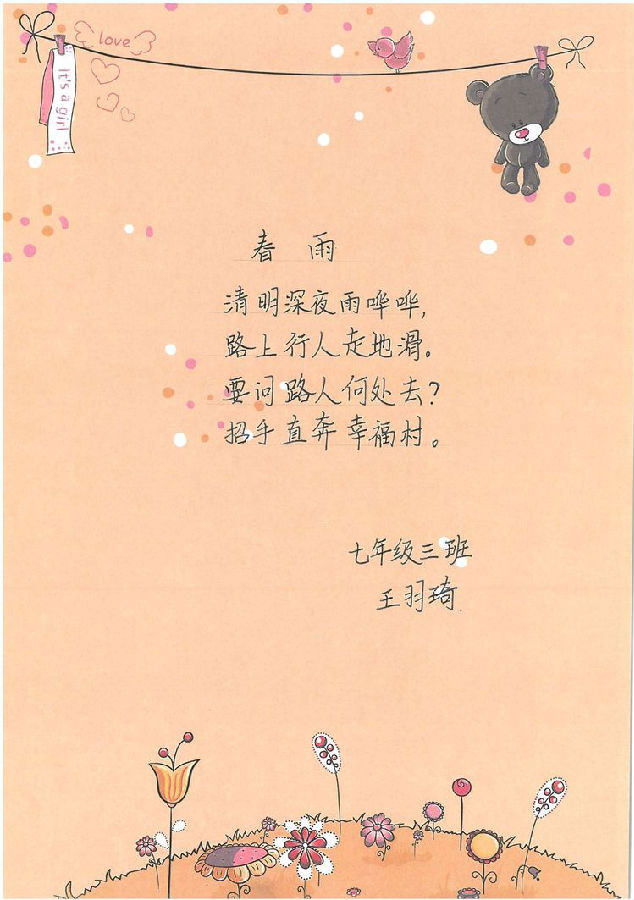 love
It's a girl
春 雨
清明深夜雨哗哗，
路上行人走地滑。
要问路人何处去？
招手直奔幸福村。
七年级三班
王羽琦